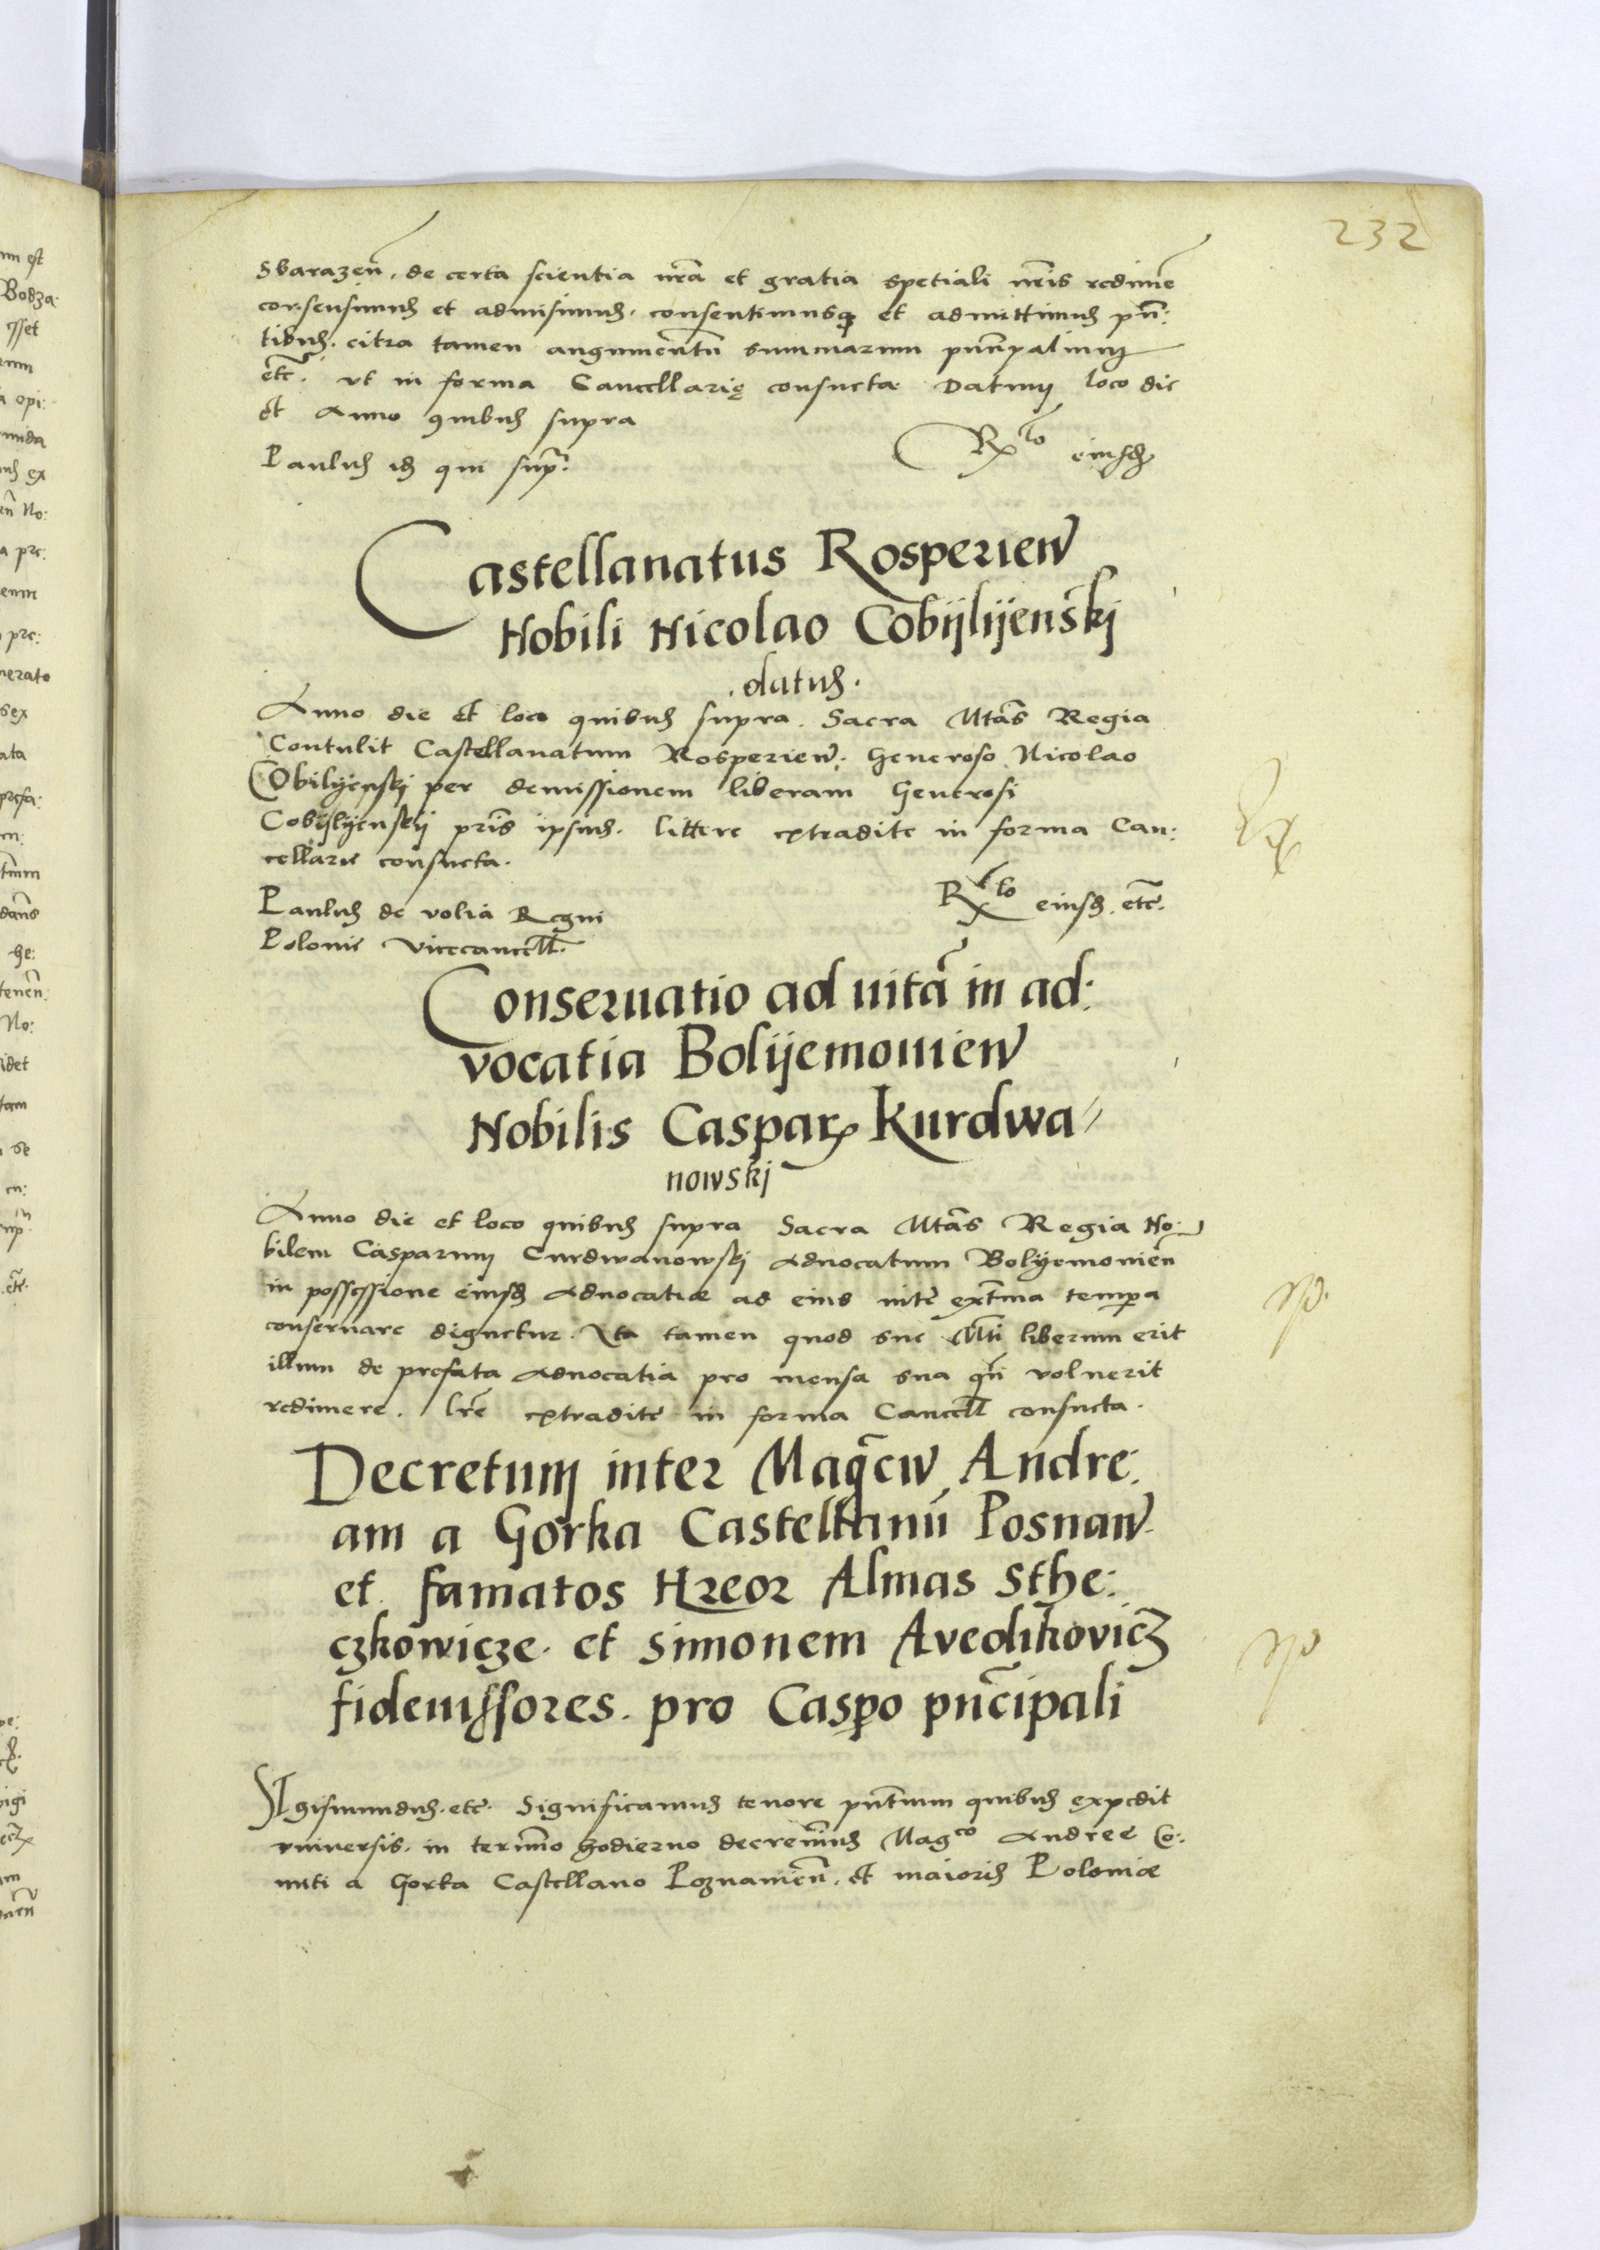 232
Sbarazen̄. de certa scientia nr̄a et gratia spetiali nr̄is redimere
consensimus et admisimus. consentimusqꝫ et admittimus pn̄:
tibus. citra tamen augumentū summarum principalium
etc̄. vt in forma Cancellarię consueta Datum loco die
et Anno quibus supra
Paulus id qui sup̄.
Rlo eiusdē
Castellanatus Rosperien̄
Nobili Nicolao Cobijlijenskj
.datus.
Anno die et loco quibus supra. Sacra Mtas Regia
Contulit Castellanatum Rosperien̄. Generoso Nicolao
Cobilyenskj per demissionem liberam Generosi
Cobijlyenskij pris ipsius. littere extradite in forma Can:
cellarie consueta.
Paulus de volia Regni
Polonie Vicecancell̄.
Rlo eiusdē. etc̄.
Conseruatio ad uitā in ad:
vocatia Bolijemouien̄
Nobilis Caspar Kurdwa
nowskj
Anno die et loco quibus supra Sacra Mtas Regia No:
bilem Casparum Curdwanowskj Aduocatum Bolyemouien̄
in possessione eiusdē Aduocatiæ ad eius uite extrema tempora
conseruare dignetur. Ita tamen quod sue Mti liberum erit
illum de prefata Aduocatia pro mensa sua qn̄ voluerit
redimere. lr̄e extradite in forma Cancell̄ consueta.
Decretum inter Magcū Andre:
am a Gorka Castellanū Posnan̄.
et famatos Hreor Almas Sthe:
czkowicze. et Simonem Avedikovicz
fideiussores. pro Caspo pn̄cipali
SIgismundus. etc̄. Significamus tenore pn̄tium quibus expedit
vniuersis. in termino hodierno decreuimus Magco Andree Co:
miti a Gorka Castellano Poznanien̄. et maioris Poloniæ